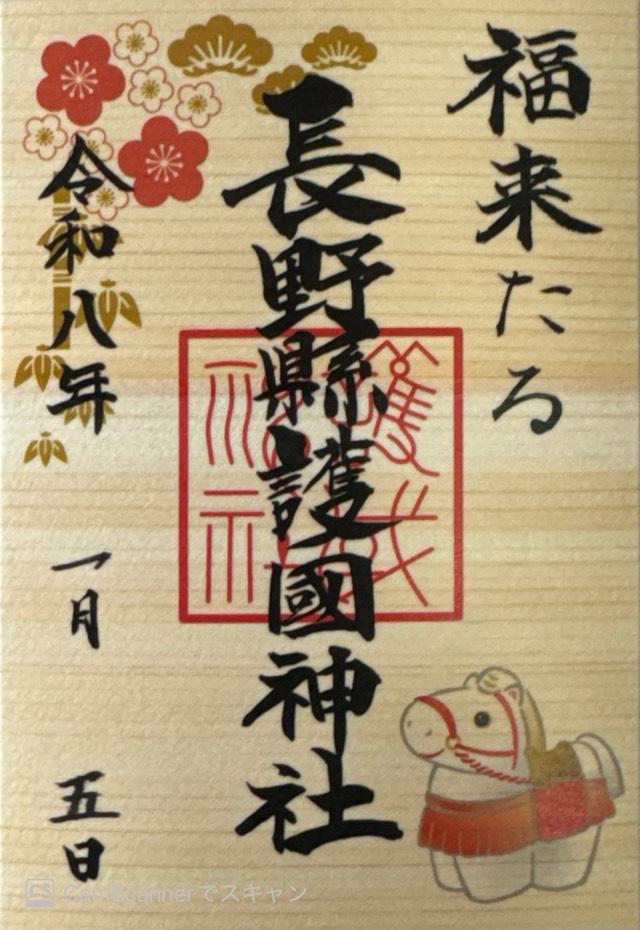 福来たる
長野縣護國神社
令和八年 一月 五日
CS CamScannerでスキャン